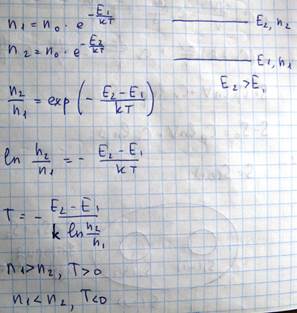 n₁ = n₀ · e^(-E₁/kT)
E₂, n₂
n₂ = n₀ · e^(-E₂/kT)
E₁, n₁
E₂ > E₁
n₂/n₁ = exp(- (E₂ - E₁)/kT)
ln n₂/n₁ = - (E₂ - E₁)/kT
T = - (E₂ - E₁)/(k ln n₂/n₁)
n₁ > n₂, T > 0
n₁ < n₂, T < 0